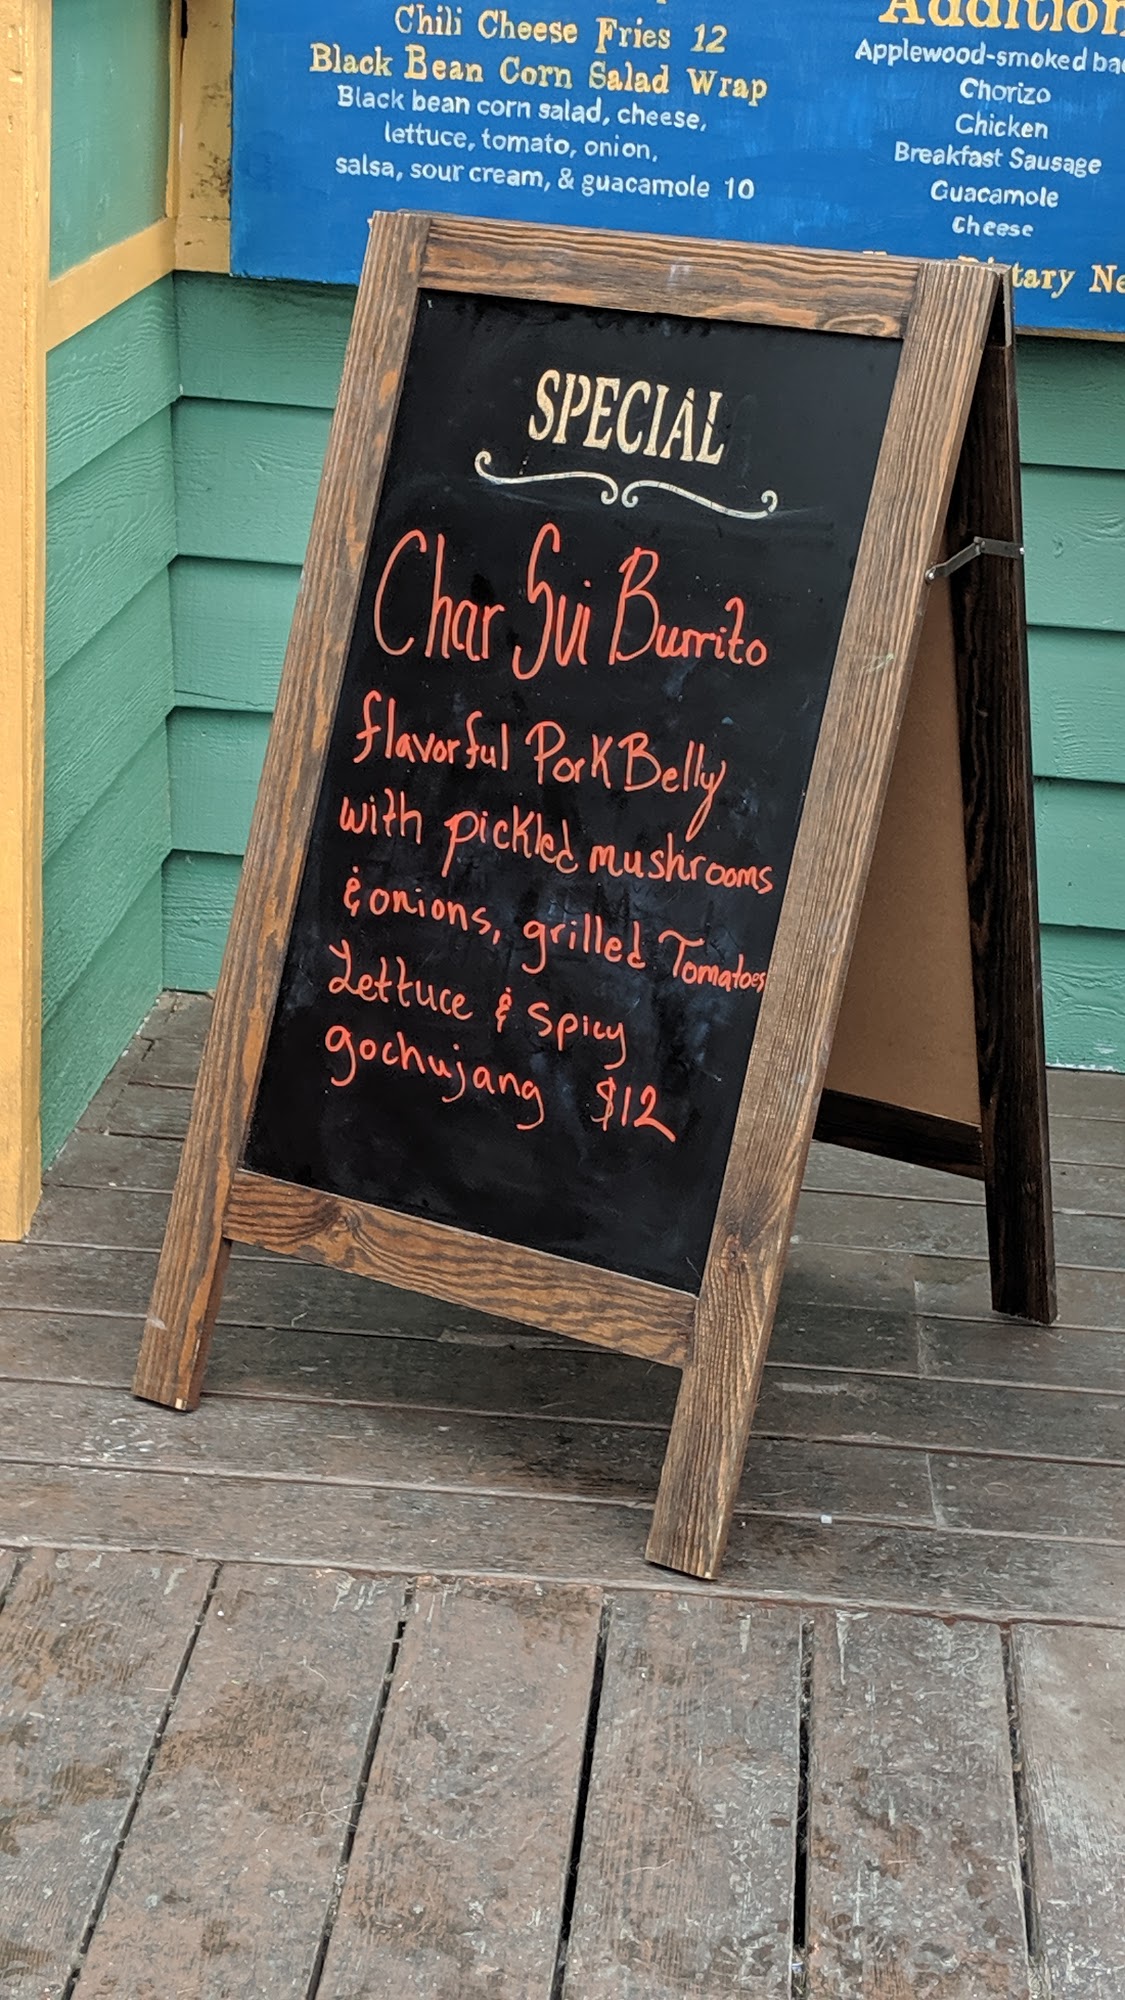 Chili Cheese Fries 12
Black Bean Corn Salad Wrap
Black bean corn salad, cheese,
lettuce, tomato, onion,
salsa, sour cream, & guacamole 10
Applewood-smoked
Chorizo
Chicken
Breakfast Sausage
Guacamole
Cheese
SPECIAL
Char Sui Burrito
flavorful Pork Belly
with pickled mushrooms
& onions, grilled Tomatoes
Lettuce & spicy
gochujang $12